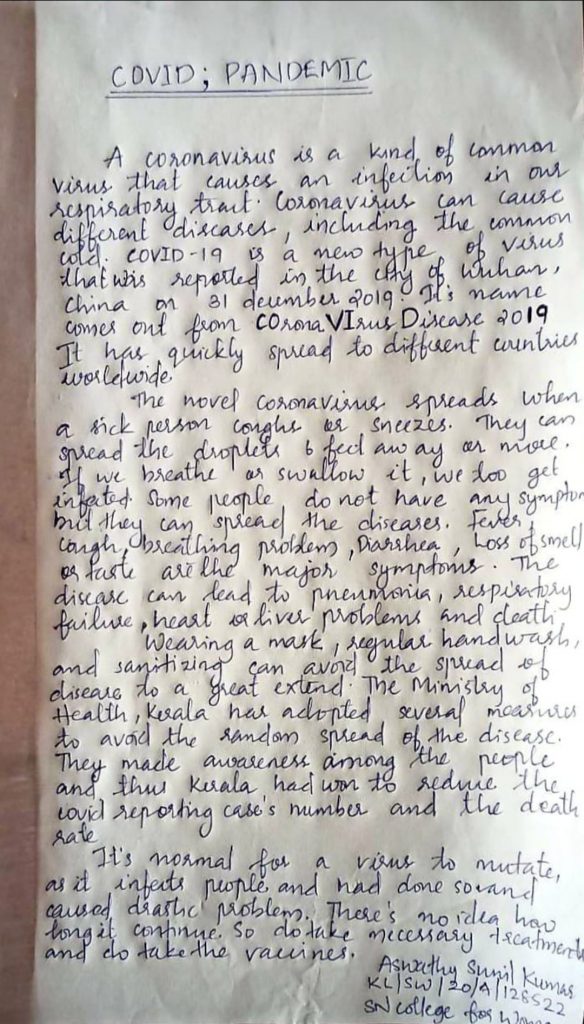 COVID; PANDEMIC
A coronavirus is a kind of common
virus that causes an infection in our
respiratory tract. Coronavirus can cause
different diseases, including the common
cold. COVID-19 is a new type of virus
that was reported in the city of Wuhan,
China on 31 december 2019. It's name
comes out from COronaVIrus Disease 2019
It has quickly spread to different countries
worldwide.
The novel coronavirus spreads when
a sick person coughs or sneezes. They can
spread the droplets 6 feet away or more.
If we breathe or swallow it, we too get
infected. Some people do not have any symptom
but they can spread the diseases. Fever,
cough, breathing problem, Diarrhea, Loss of smell
or taste are the major symptoms. The
disease can lead to pneumonia, respiratory
failure, heart or liver problems and death
Wearing a mask, regular handwash,
and sanitizing can avoid the spread of
disease to a great extend. The Ministry of
Health, Kerala has adopted several measures
to avoid the random spread of the disease.
They made awareness among the people
and thus Kerala had won to reduce the
covid reporting case's number and the death
rate
It's normal for a virus to mutate,
as it infects people and had done so and
caused drastic problem. There's no idea how
long it continue. So do take necessary treatments
and do take the vaccines.
Aswathy Sunil Kumar
KL/SW/20/A/128522
SN College for